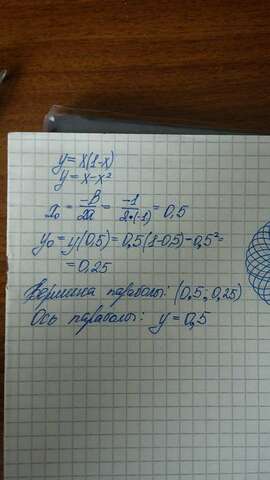 y = x(1-x)
y = x - x²
x₀ = -B/2a = -1/2*(-1) = 0,5
y₀ = y(0,5) = 0,5(1-0,5) - 0,5² =
= 0,25
Вершина параболы: (0,5; 0,25)
Ось параболы: y = 0,5